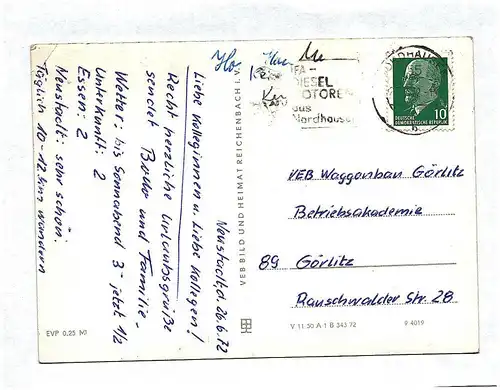 Neustadt, d. 26.6.72
Liebe Kolleginnen u. Liebe Kollegen!
Recht herzliche Urlaubsgrüße
sendet und Familie.
Wetter: bis Sonnabend 3 - jetzt 1/2
Unterkunft: 2
Essen: 2
Neustadt: sehr schön.
Täglich 10-12 km wandern
EVP 0,25 M
VEB BILD UND HEIMAT REICHENBACH I. V.
IFA-
DIESEL
MOTOREN
aus
Nordhausen
DEUTSCHE
DEMOKRATISCHE REPUBLIK
10
VEB Waggonbau Görlitz
Betriebsakademie
89 Görlitz
Rauschwalder Str. 28
V 11 50 A 1 B 343 72
9 4019